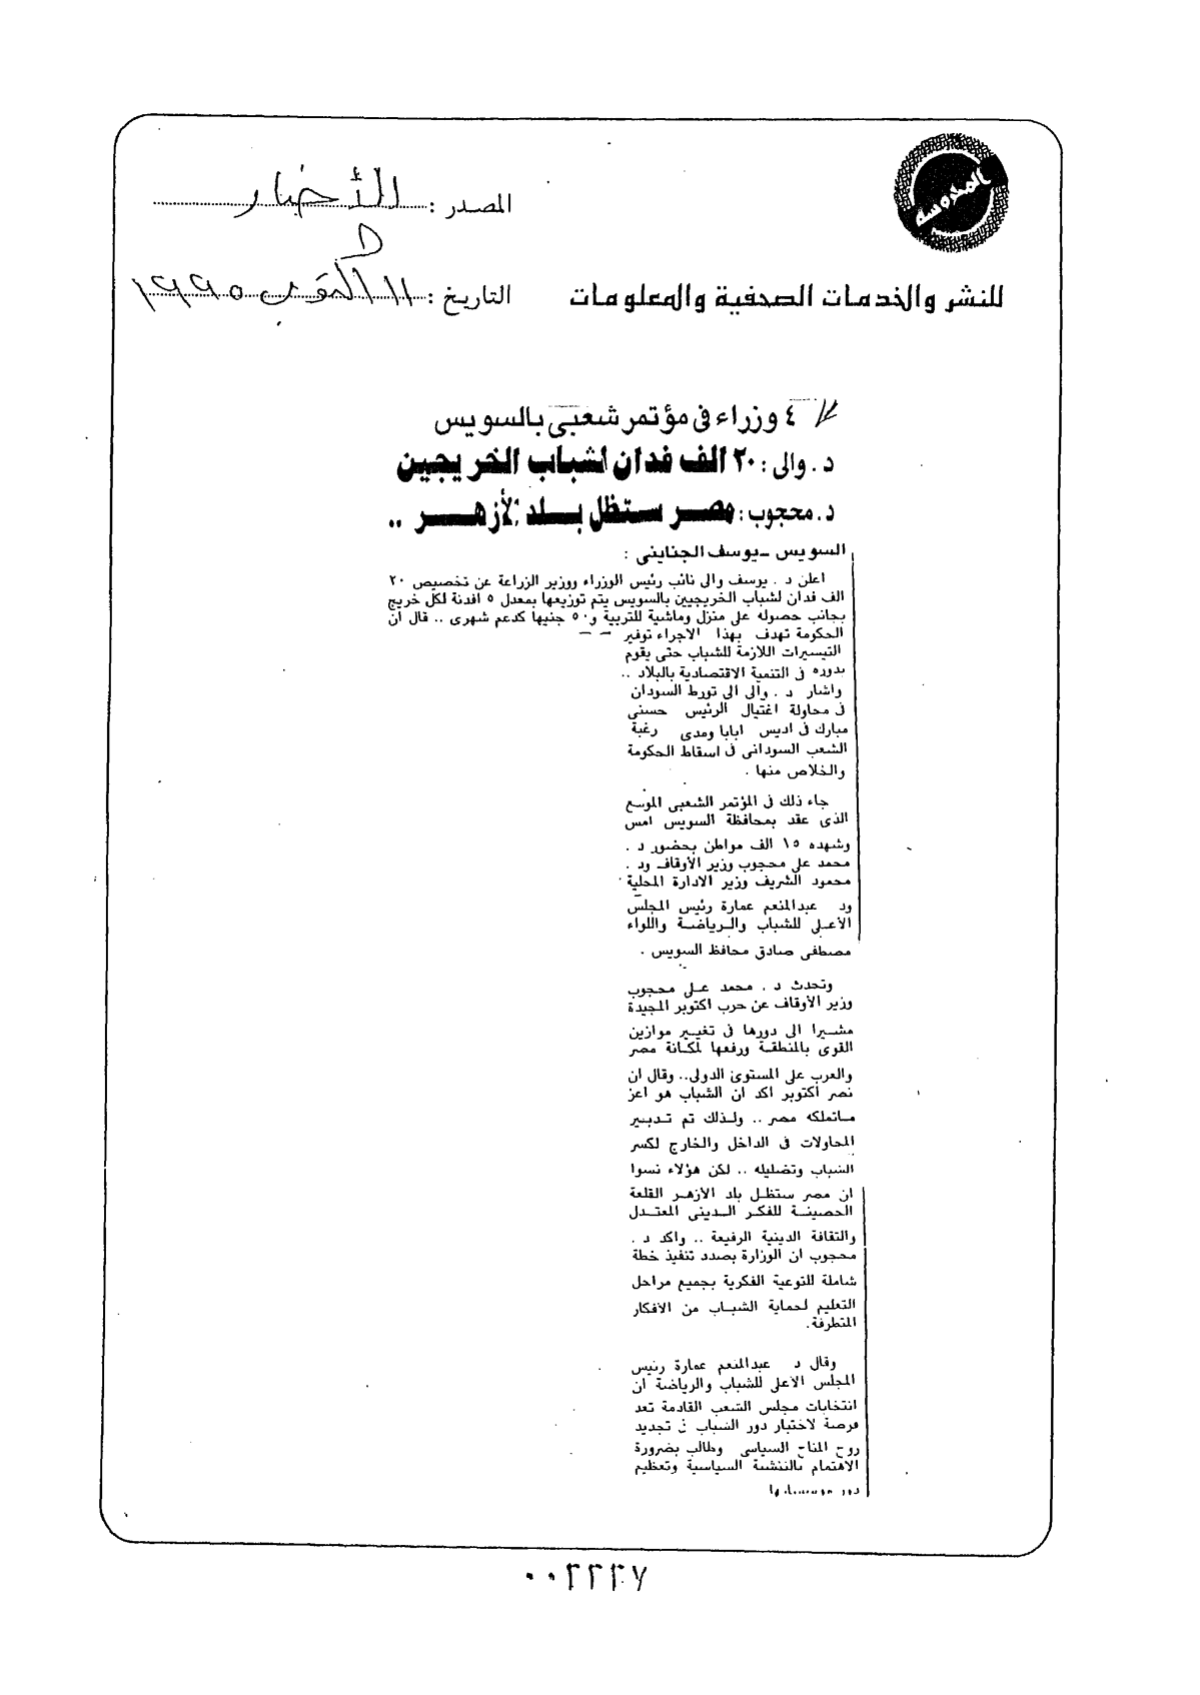 المحروسة
المصدر : الأخبار
للنشر والخدمات الصحفية والمعلومات
التاريخ : ١١ اكتوبر ١٩٩٥
٤ وزراء فى مؤتمر شعبى بالسويس
د . والى : ٢٠ الف فدان لشباب الخريجين
د . محجوب : مصر ستظل بلد الأزهر ..
السويس - يوسف الجناينى :
اعلن د . يوسف والى نائب رئيس الوزراء ووزير الزراعة عن تخصيص ٢٠
الف فدان لشباب الخريجيين بالسويس يتم توزيعها بمعدل ٥ افدنة لكل خريج
بجانب حصوله على منزل وماشية للتربية و٥٠ جنيها كدعم شهرى .. قال ان
الحكومة تهدف بهذا الاجراء توفير
التيسيرات اللازمة للشباب حتى يقوم
بدوره فى التنمية الاقتصادية بالبلاد ..
واشار د . والى الى تورط السودان
فى محاولة اغتيال الرئيس حسنى
مبارك فى اديس ابابا ومدى رغبة
الشعب السودانى فى اسقاط الحكومة
والخلاص منها .
جاء ذلك فى المؤتمر الشعبى الموسع
الذى عقد بمحافظة السويس امس
وشهده ١٥ الف مواطن بحضور د .
محمد على محجوب وزير الأوقاف ود .
محمود الشريف وزير الادارة المحلية
ود عبدالمنعم عمارة رئيس المجلس
الأعلى للشباب والرياضة واللواء
مصطفى صادق محافظ السويس .
وتحدث د . محمد على محجوب
وزير الأوقاف عن حرب اكتوبر المجيدة
مشيرا الى دورها فى تغيير موازين
القوى بالمنطقة ورفعها لمكانة مصر
والعرب على المستوى الدولى.. وقال ان
نصر أكتوبر اكد ان الشباب هو اعز
ماتملكه مصر .. ولذلك تم تدبير
المحاولات فى الداخل والخارج لكسر
الشباب وتضليله .. لكن هؤلاء نسوا
ان مصر ستظل بلد الأزهر القلعة
الحصينة للفكر الدينى المعتدل
والثقافة الدينية الرفيعة .. واكد د .
محجوب ان الوزارة بصدد تنفيذ خطة
شاملة للتوعية الفكرية بجميع مراحل
التعليم لحماية الشباب من الافكار
المتطرفة.
وقال د عبدالمنعم عمارة رئيس
المجلس الأعلى للشباب والرياضة ان
انتخابات مجلس الشعب القادمة تعد
فرصة لاختبار دور الشباب فى تجديد
روح المناخ السياسى وطالب بضرورة
الاهتمام بالتنشئة السياسية وتعظيم
دور
٠٠٢٢٢٧